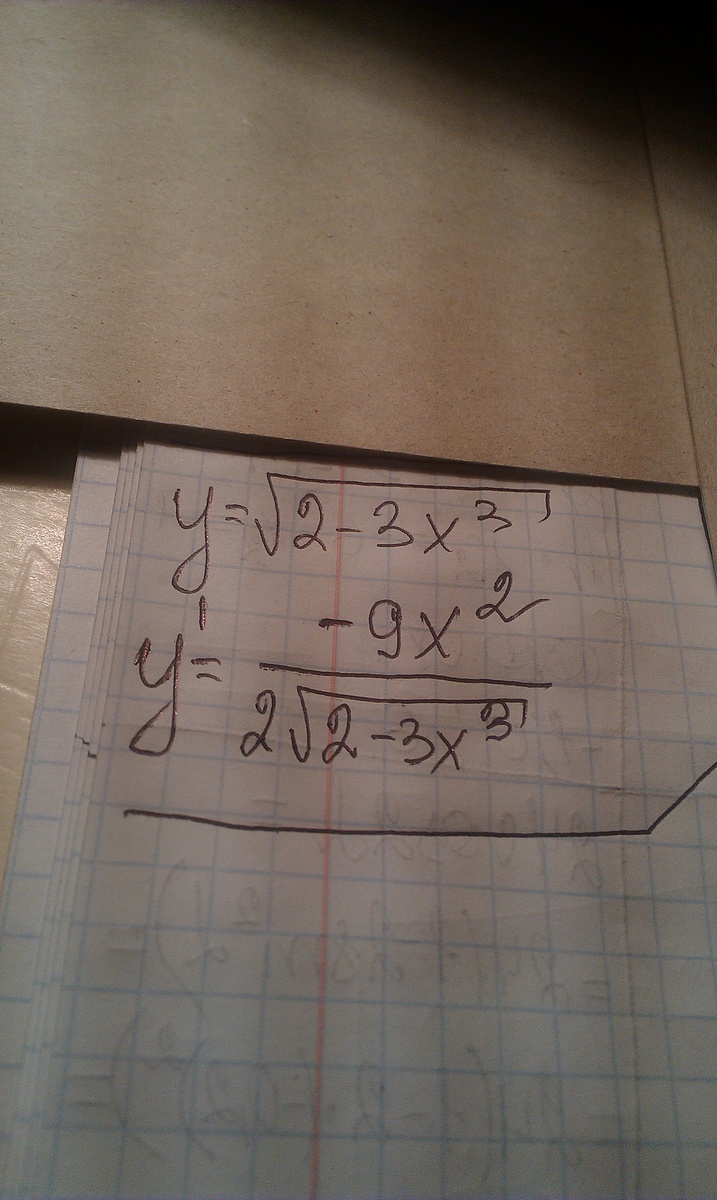 y=√(2-3x³)
y'= -9x² / 2√(2-3x³)